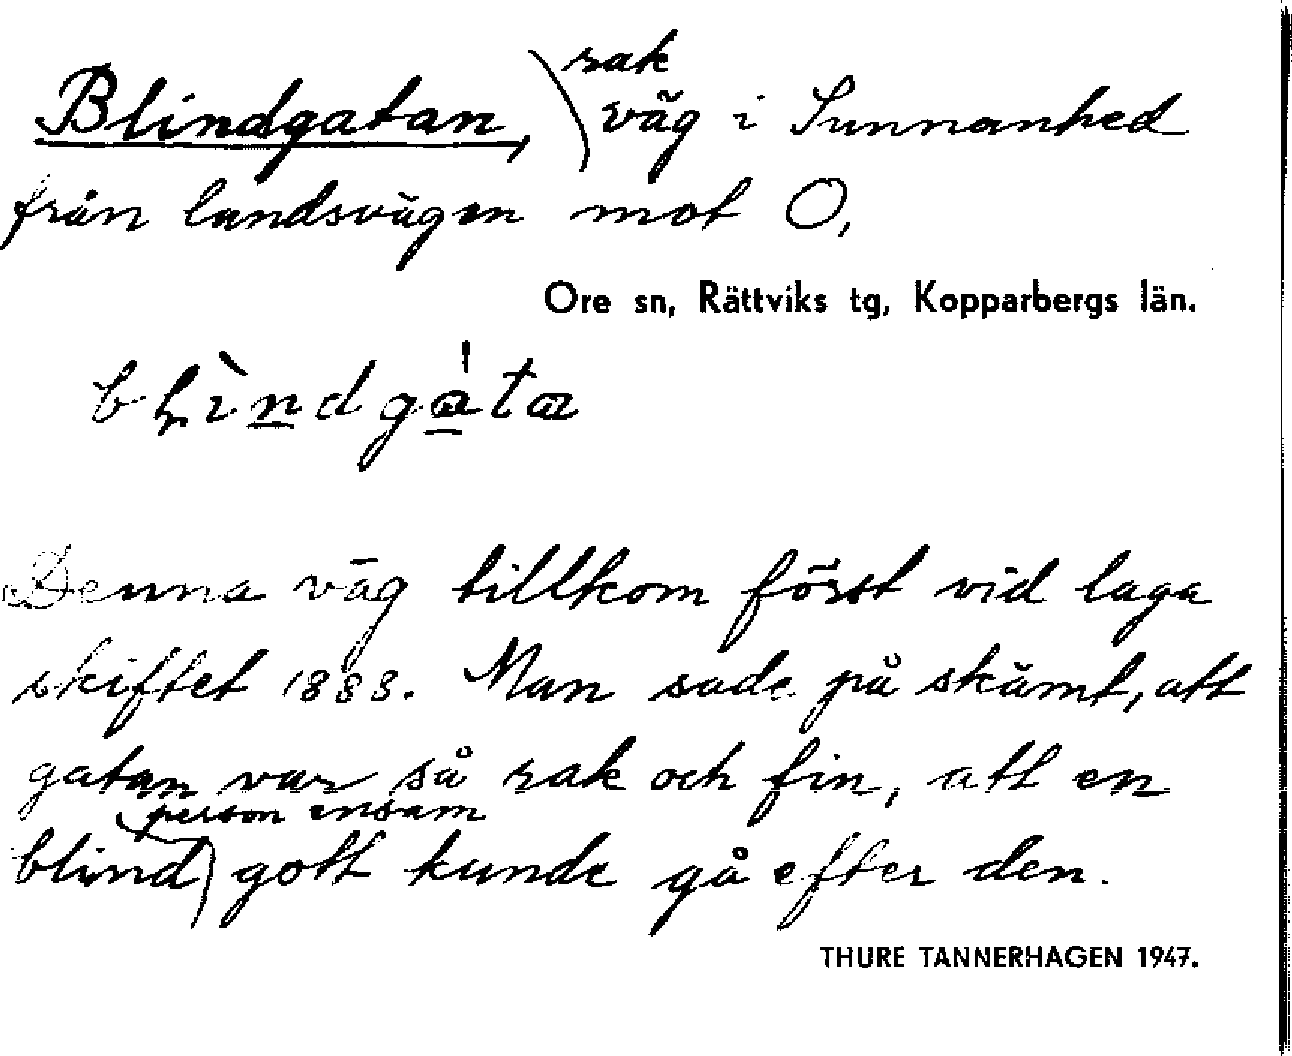 Blindgatan, rak väg i Sunnanhed
från landsvägen mot O,
Ore sn, Rättviks tg, Kopparbergs län.
Denna väg tillkom först vid laga
skiftet 1888. Man sade på skämt, att
gatan var så rak och fin, att en
blind person ensam gott kunde gå efter den.
THURE TANNERHAGEN 1947.